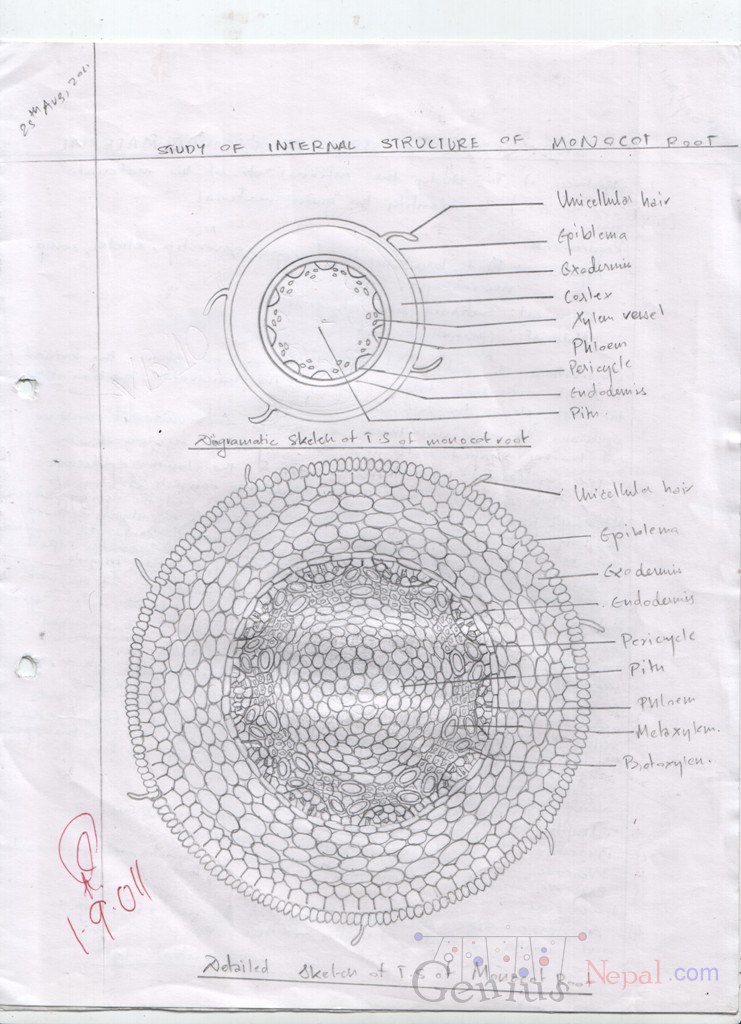 25th Aug, 2011
STUDY OF INTERNAL STRUCTURE OF MONOCOT ROOT
Unicellular hair
Epiblema
Exodermis
Cortex
Xylem vessel
Phloem
Pericycle
Endodermis
Pith
Diagramatic Sketch of T.S of monocot root
Unicellular hair
Epiblema
Exodermis
Endodermis
Pericycle
Pith
Phloem
Metaxylem.
Protoxylem.
1.9.011
Detailed Sketch of T.S of Monocot Root
Genius Nepal.com